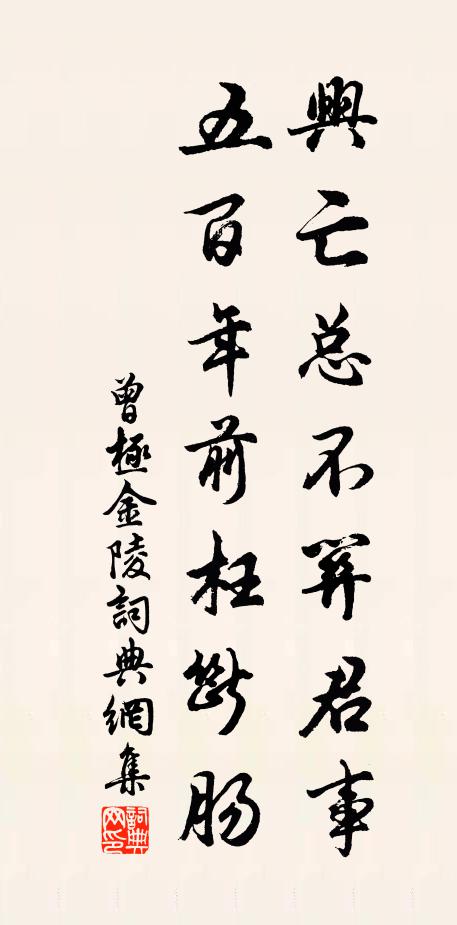 興亡总不関君事
五百年前枉斷腸
曾極金陵詞典網集
詞典網印